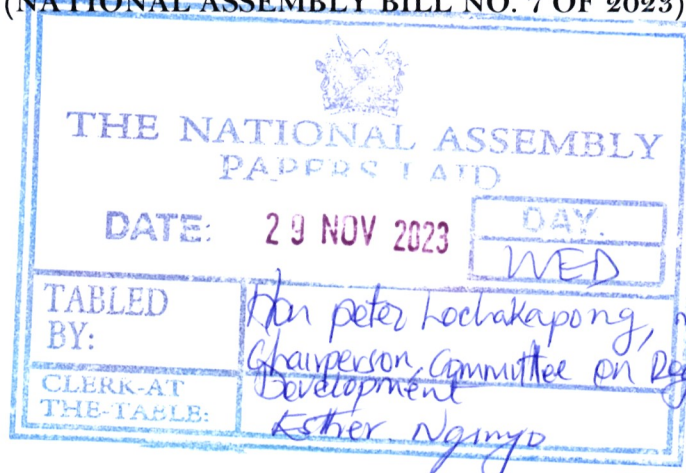 (NATIONAL ASSEMBLY BILL NO. 7 OF 2023)
THE NATIONAL ASSEMBLY
PAPERS LAID
DATE: 29 NOV 2023
DAY.
WED
TABLED BY:
Hon peter Lochakapong,
Chairperson, Committee on Reg
Development
CLERK-AT THE-TABLE:
Esther